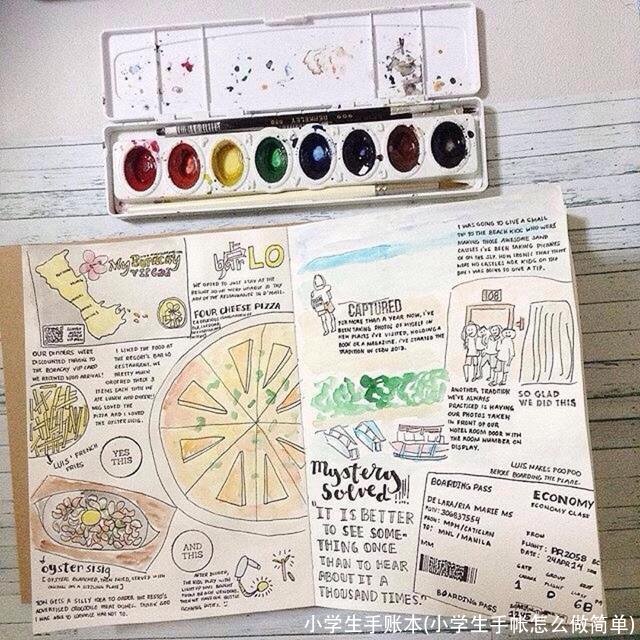 909 BERKELEY
My Boracay
bar LO
WE OPTED TO JUST STAY AT THE
FOUR CHEESE PIZZA
OUR DINNERS WERE
DISCOUNTED THANKS TO
THE BORACAY VIP CARD
WE RECEIVED UPON ARRIVAL!
I LIKED THE FOOD AT
THE RESORT'S BAR LO
RESTAURANT. WE
PRETTY MUCH
ORDERED THESE 3
ITEMS EACH TIME WE
ATE LUNCH AND DINNER!
MIG LOVED THE
PIZZA AND I LOVED
THE OYSTER SISIG.
LUIS: FRENCH
FRIES
YES
THIS
AND
THIS
OYSTER SISIG
[OYSTERS BLANCHED, THEN FRIED, SERVED WITH
AFTER DINNER,
THE KIDS PLAY WITH
LIGHT-UP TOYS BOUGHT
FROM BEACH VENDORS.
TOM GETS A SILLY IDEA TO ORDER THE RESTO'S
ADVERTISED CROCODILE MEAT DISHES. THANK GOD
I WAS ABLE TO CONVINCE HIM NOT TO.
I WAS GOING TO GIVE A SMALL
TIP TO THE BEACH KIDS WHO WERE
MAKING THOSE AWESOME SAND
CASTLES I'VE BEEN TAKING PICTURES
OF ON THE SLY. HOW IRONIC THAT THERE
WERE NO CASTLES NOR KIDS ON THE
DAY I WAS GOING TO GIVE A TIP.
CAPTURED
FOR MORE THAN A YEAR NOW, I'VE
BEEN TAKING PHOTOS OF MYSELF IN
NEW PLACES I'VE VISITED, HOLDING A
BOOK OR A MAGAZINE. I'VE STARTED THE
TRADITION IN CEBU 2013.
108
ANOTHER TRADITION
WE'VE ALWAYS
PRACTICED IS HAVING
OUR PHOTOS TAKEN
IN FRONT OF OUR
HOTEL ROOM DOOR WITH
THE ROOM NUMBER ON
DISPLAY.
SO GLAD
WE DID THIS
Mystery
Solved!!!
"IT IS BETTER
TO SEE SOME-
THING ONCE
THAN TO HEAR
ABOUT IT A
THOUSAND TIMES."
LUIS MAKES POOPOO
BEFORE BOARDING THE PLANE.
BOARDING PASS
ECONOMY
ECONOMY CLASS
DE LARA/RIA MARIE MS
FROM: MPH/CATICLAN
TO: MNL/MANILA
FROM:
FLIGHT: PR2058
DATE: 24APR14
GATE
GROUP
SEAT
D
6B
MM
BOARDING PASS
小学生手账本(小学生手帐怎么做简单)